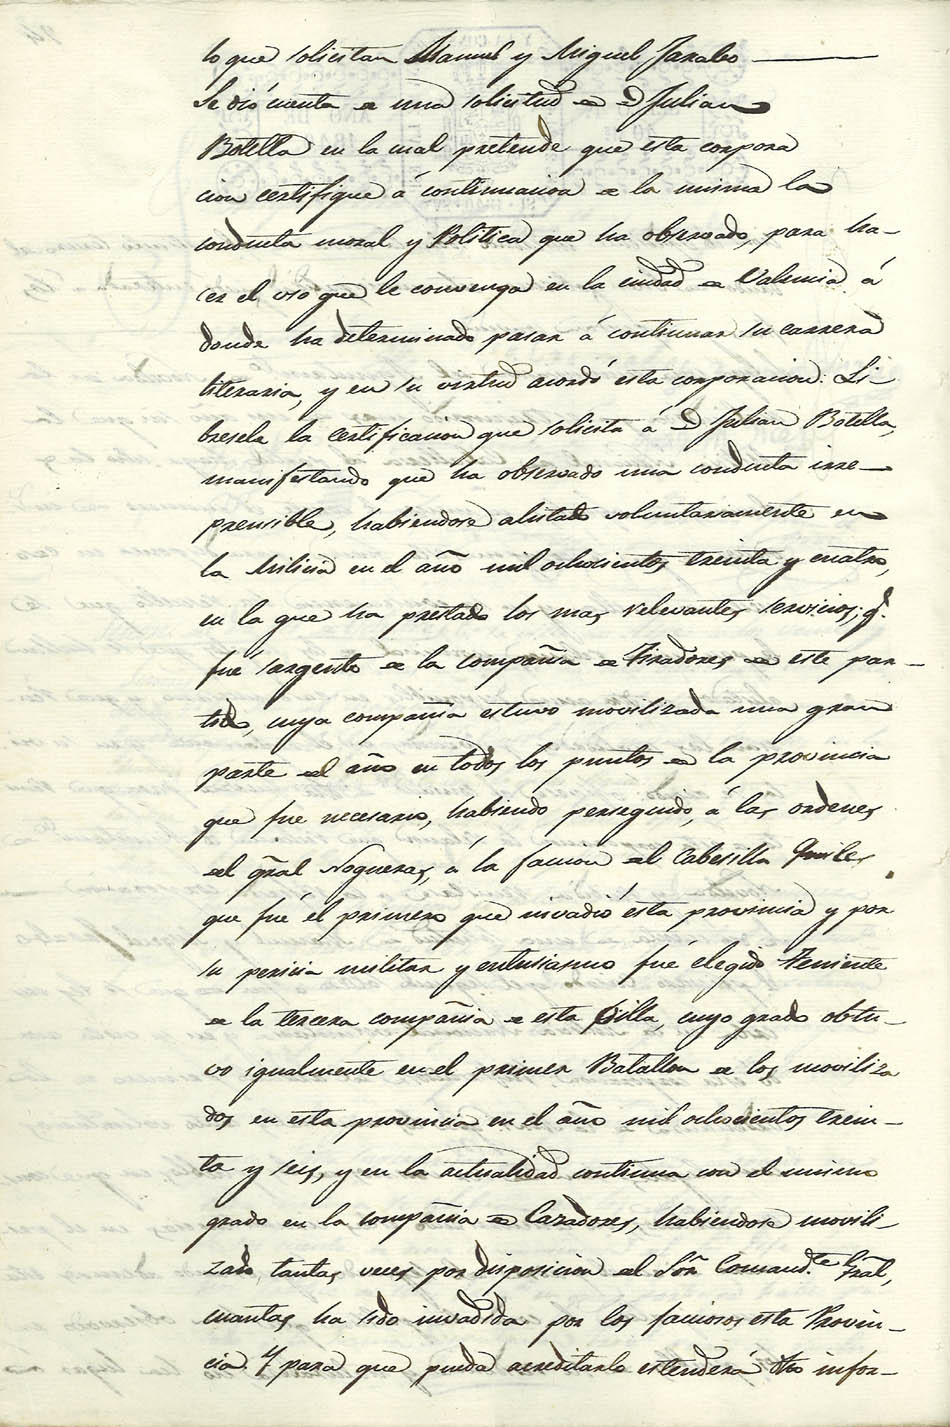 lo que solicitan Manuel y Miguel Jarabo
Se dió cuenta de una solicitud de D Julian
Botella en la cual pretende que esta corpora
cion certifique á continuacion de la misma la
conducta moral y Politica que ha observado, para ha-
cer el uso que le convenga en la ciudad de Valencia á
donde ha determinado pasar á continuar su carrera
literaria, y en su virtud acordó esta corporacion: Li-
bresele la certificacion que solicita á D Julian Botella,
manifestando que ha observado una conducta irre-
prensible, habiendose alistado voluntariamente en
la Milicia en el año mil ochocientos treinta y cuatro,
en la que ha prestado los mas relevantes servicios; q.
fué sargento de la compañia de Tiradores de este par-
tido, cuya compañia estuvo movilizada una gran
parte del año en todos los puntos de la provincia
que fue necesario, habiendo perseguido, á las ordenes
del gral Nogueras, á la faccion del Cabesilla Quiles
que fué el primero que invadió esta provincia y por
su pericia militar y entusiasmo fué elegido Teniente
de la tercera compañia de esta Villa, cuyo grado obtu-
vo igualmente en el primer Batallon de los moviliza
dos en esta provincia en el año mil ochocientos trein-
ta y seis, y en la actualidad continua con el mismo
grado en la compañia de Cazadores, habiendose movili-
zado, tantas veces por disposicion del Sõr Comand.te Gral,
cuantas ha sido invadida por los facciosos esta Provin-
cia. Y para que pueda acreditarlo estenderá dho infor-